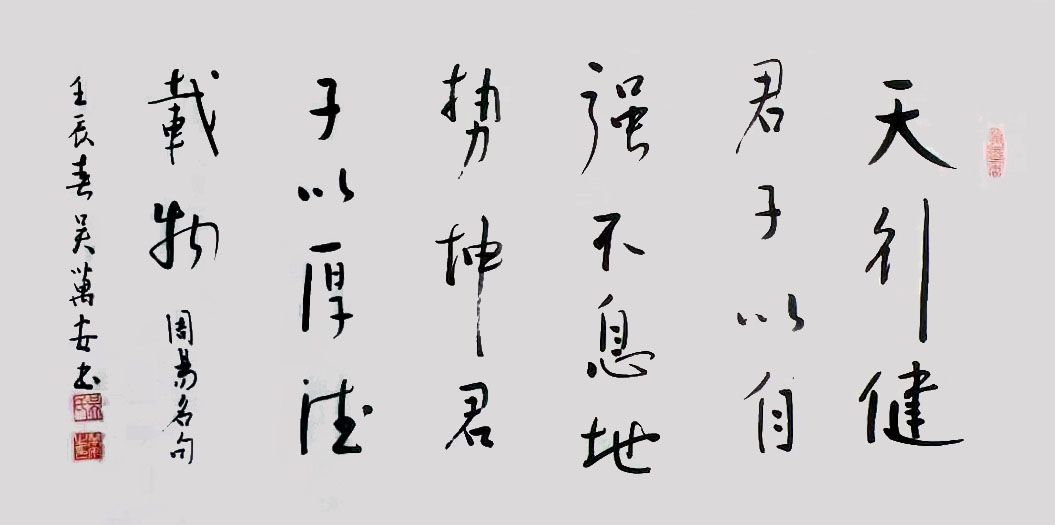 天行健
君子以自
强不息地
势坤君
子以厚德
載物
周易名句
壬辰春吴萬安书